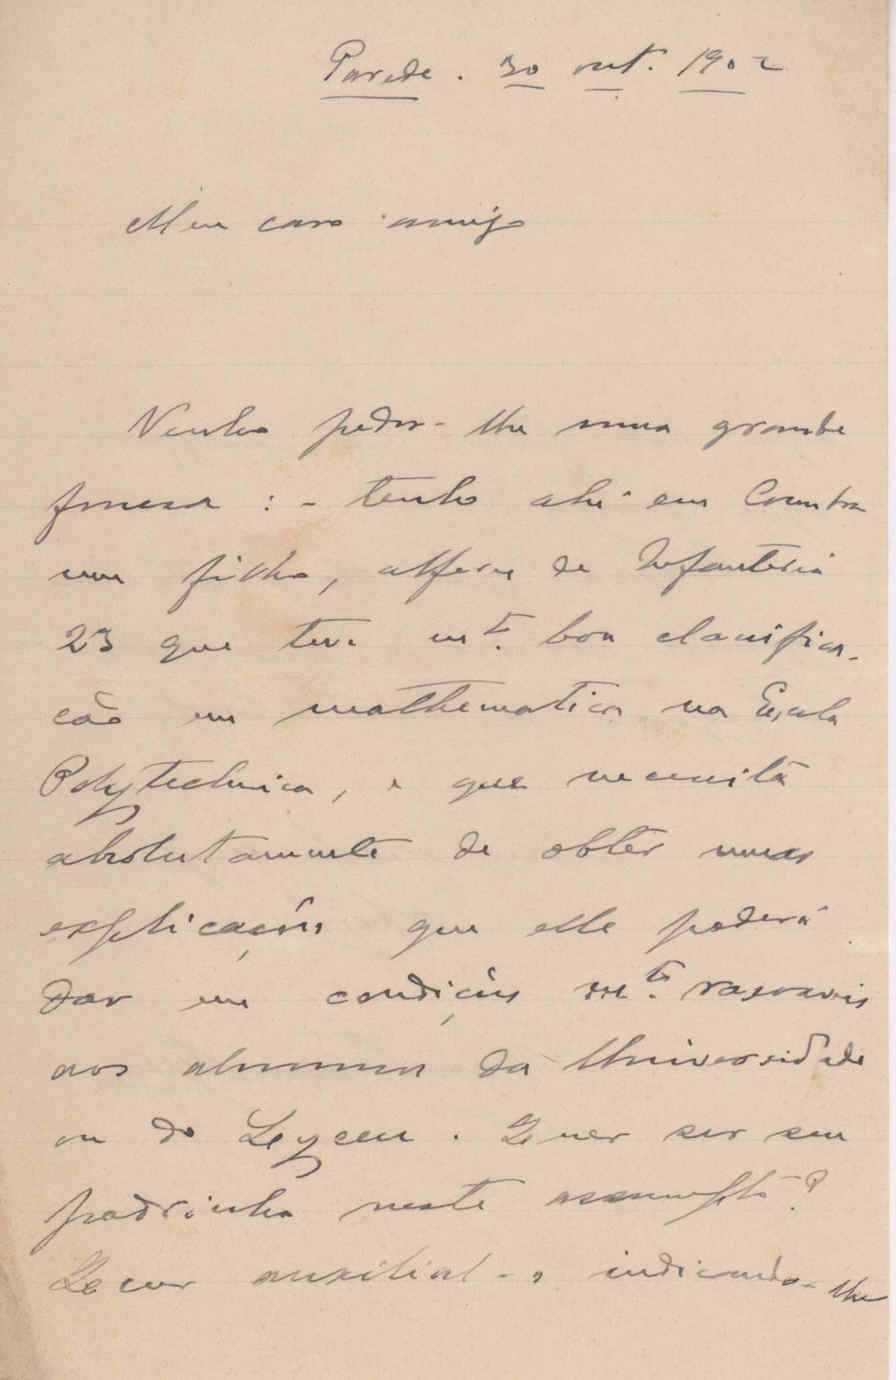 Parede. 30 out. 1902
Meu caro amigo
Venho pedir-lhe uma grande
fineza : - tenho ahi em Coimbra
um filho, alferes de Infanteria
23 que teve mto. boa classifica-
ção em mathematica na Escola
Polytechnica, e que necessita
absolutamente de obter umas
explicações que elle poderá
dar em condições mto. rasoaveis
aos alumnos da Universidade
ou do Lyceu. Quer ser seu
padrinho neste assumpto?
Quer auxilial-o, indicando-lhe